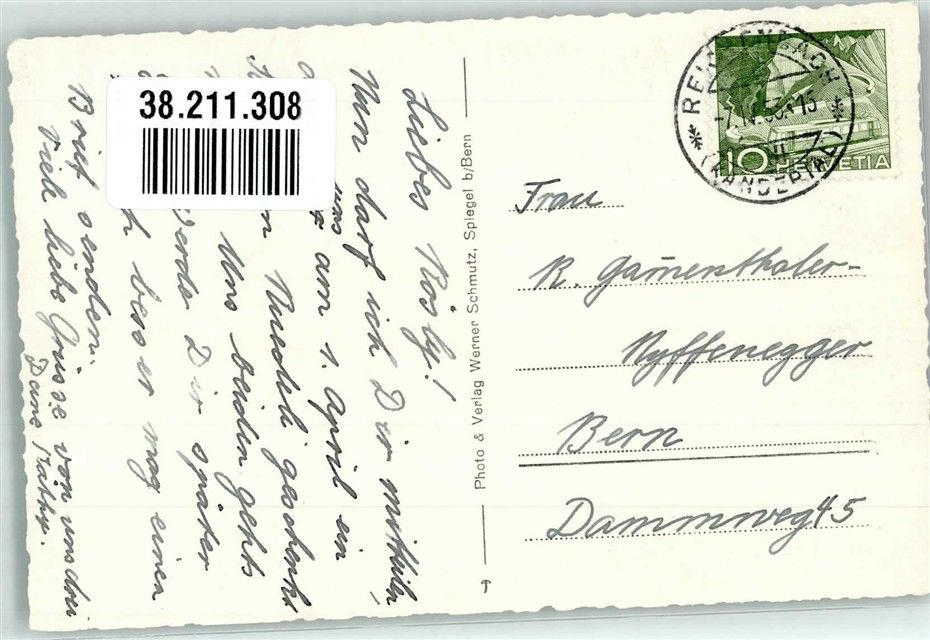 38.211.308
Liebes Rösly!
Nun darf ich Dir mitteilen
uns am 1. April ein
Ursedli geschenkt
Uns beiden gehts
werde Dir später
besser mag einen
Brief senden.
Viele liebe Grüsse von uns drei
Deine
Photo & Verlag Werner Schmutz, Spiegel b/Bern
REICHENBACH
(KANDERTAL)
10 HELVETIA
Frau
R. Gam̄enthaler-
Nyffenegger
Bern
Dammweg 45